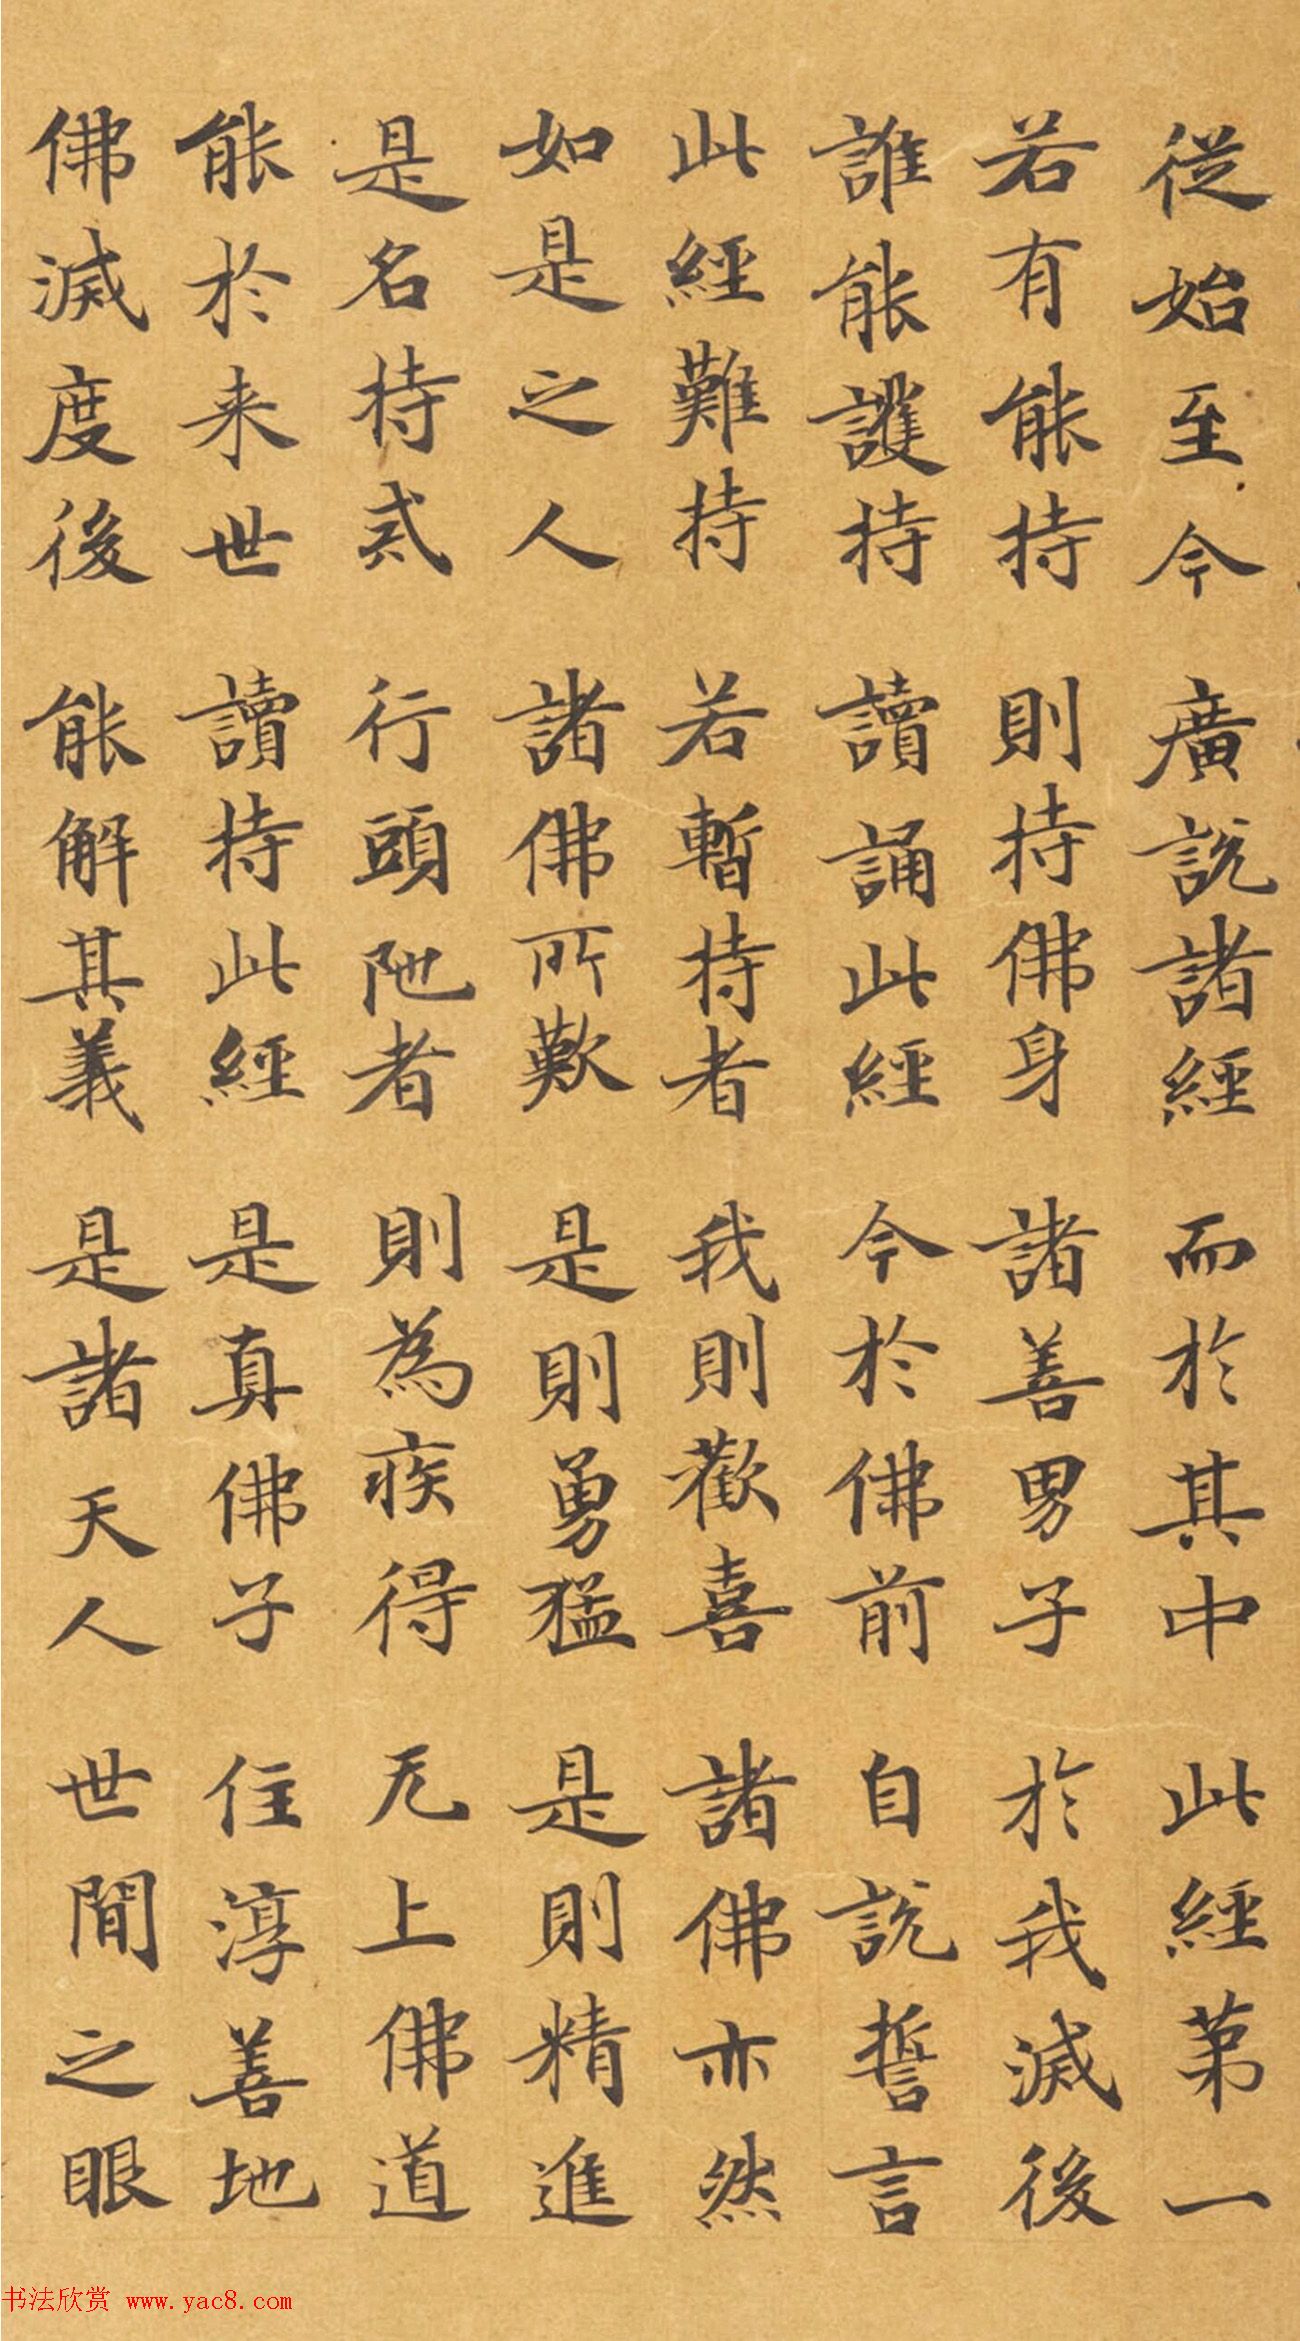 從始至今 廣說諸經 而於其中 此經第一
若有能持 則持佛身 諸善男子 於我滅後
誰能護持 讀誦此經 今於佛前 自說誓言
此經難持 若暫持者 我則歡喜 諸佛亦然
如是之人 諸佛所歎 是則勇猛 是則精進
是名持貳 行頭陁者 則為疾得 无上佛道
能於来世 讀持此經 是真佛子 住淳善地
佛滅度後 能解其義 是諸天人 世間之眼
书法欣赏 www.yac8.com